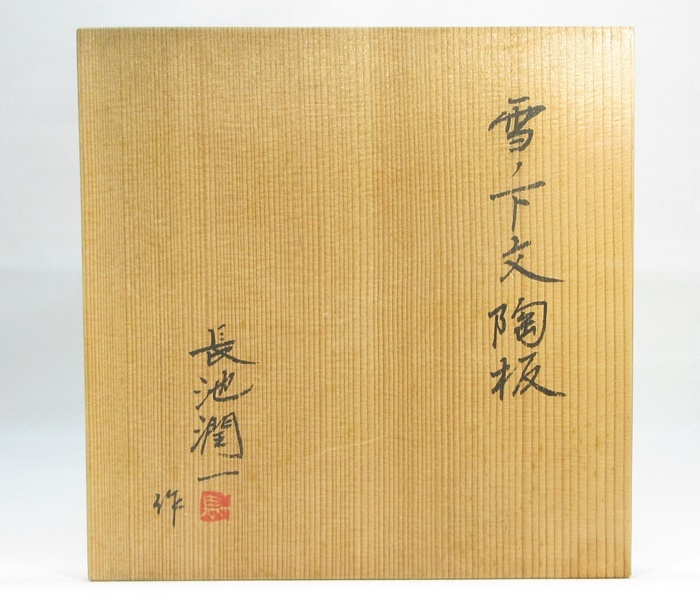 雪ノ下文陶板
長池潤一
作
長